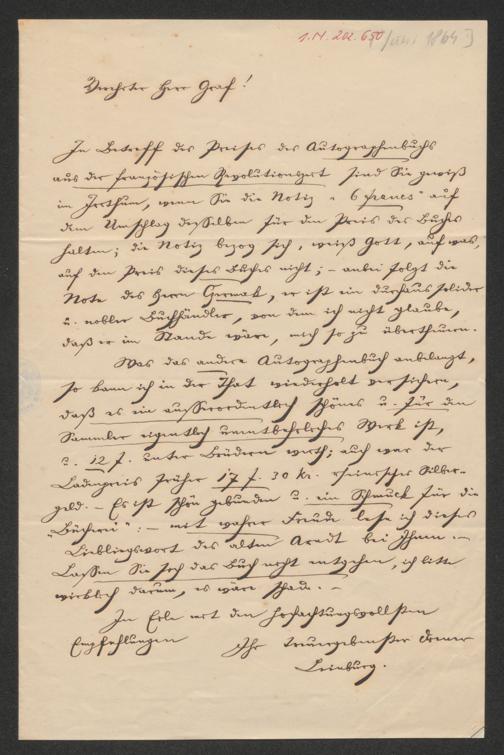 I.N. 202.650
[Juni 1864]
Verehrter Herr Graf!
In Betreff des Preises des Autographenbuchs
aus der französischen Revolutionszeit sind Sie gewiß
im Irrthum, wenn Sie die Notiz „6 francs" auf
dem Umschlag desselben für den Preis des Buches
halten; die Notiz bezog sich, weiß Gott, auf was,
auf den Preis dieses Buches nicht; – anbei folgt die
Note des Herrn, er ist ein durchaus solider
u. nobler Buchhändler, von dem ich nicht glaube,
daß er im Stande wäre, mich so zu übertheuern.
Was das andere Autographenbuch anbelangt,
so kann ich in der That wiederholt versichern,
daß es ein außerordentlich schönes u. für den
Sammler eigentlich unentbehrliches Werk ist,
u. 12 f. unter Brüdern werth; auch war der
Ladenpreis früher 17 f. 30 kr. rheinischer Silber-
geld. – Es ist schön gebunden u. ein Schmuck für die
„Bücherei": – mit wahrer Freude lese ich dieses
Lieblingswort des alten Arndt bei Ihnen. –
Lassen Sie sich das Buch nicht entgehen, ich bitte
wirklich darum, es wäre schade. –
In Eile mit den hochachtungsvollsten
Empfehlungen Ihr treuergebenster Diener
Leinburg.